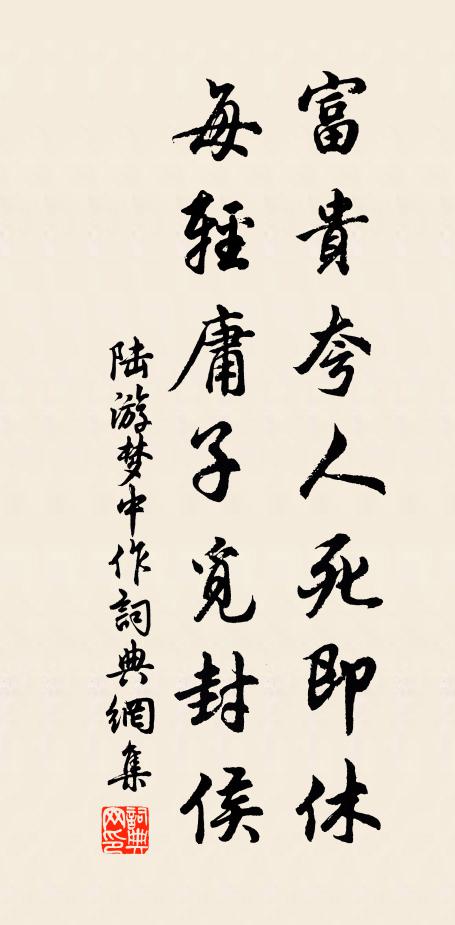 富貴夸人死即休
每輕庸子覓封侯
陆游梦中作詞典網集
詞典网印